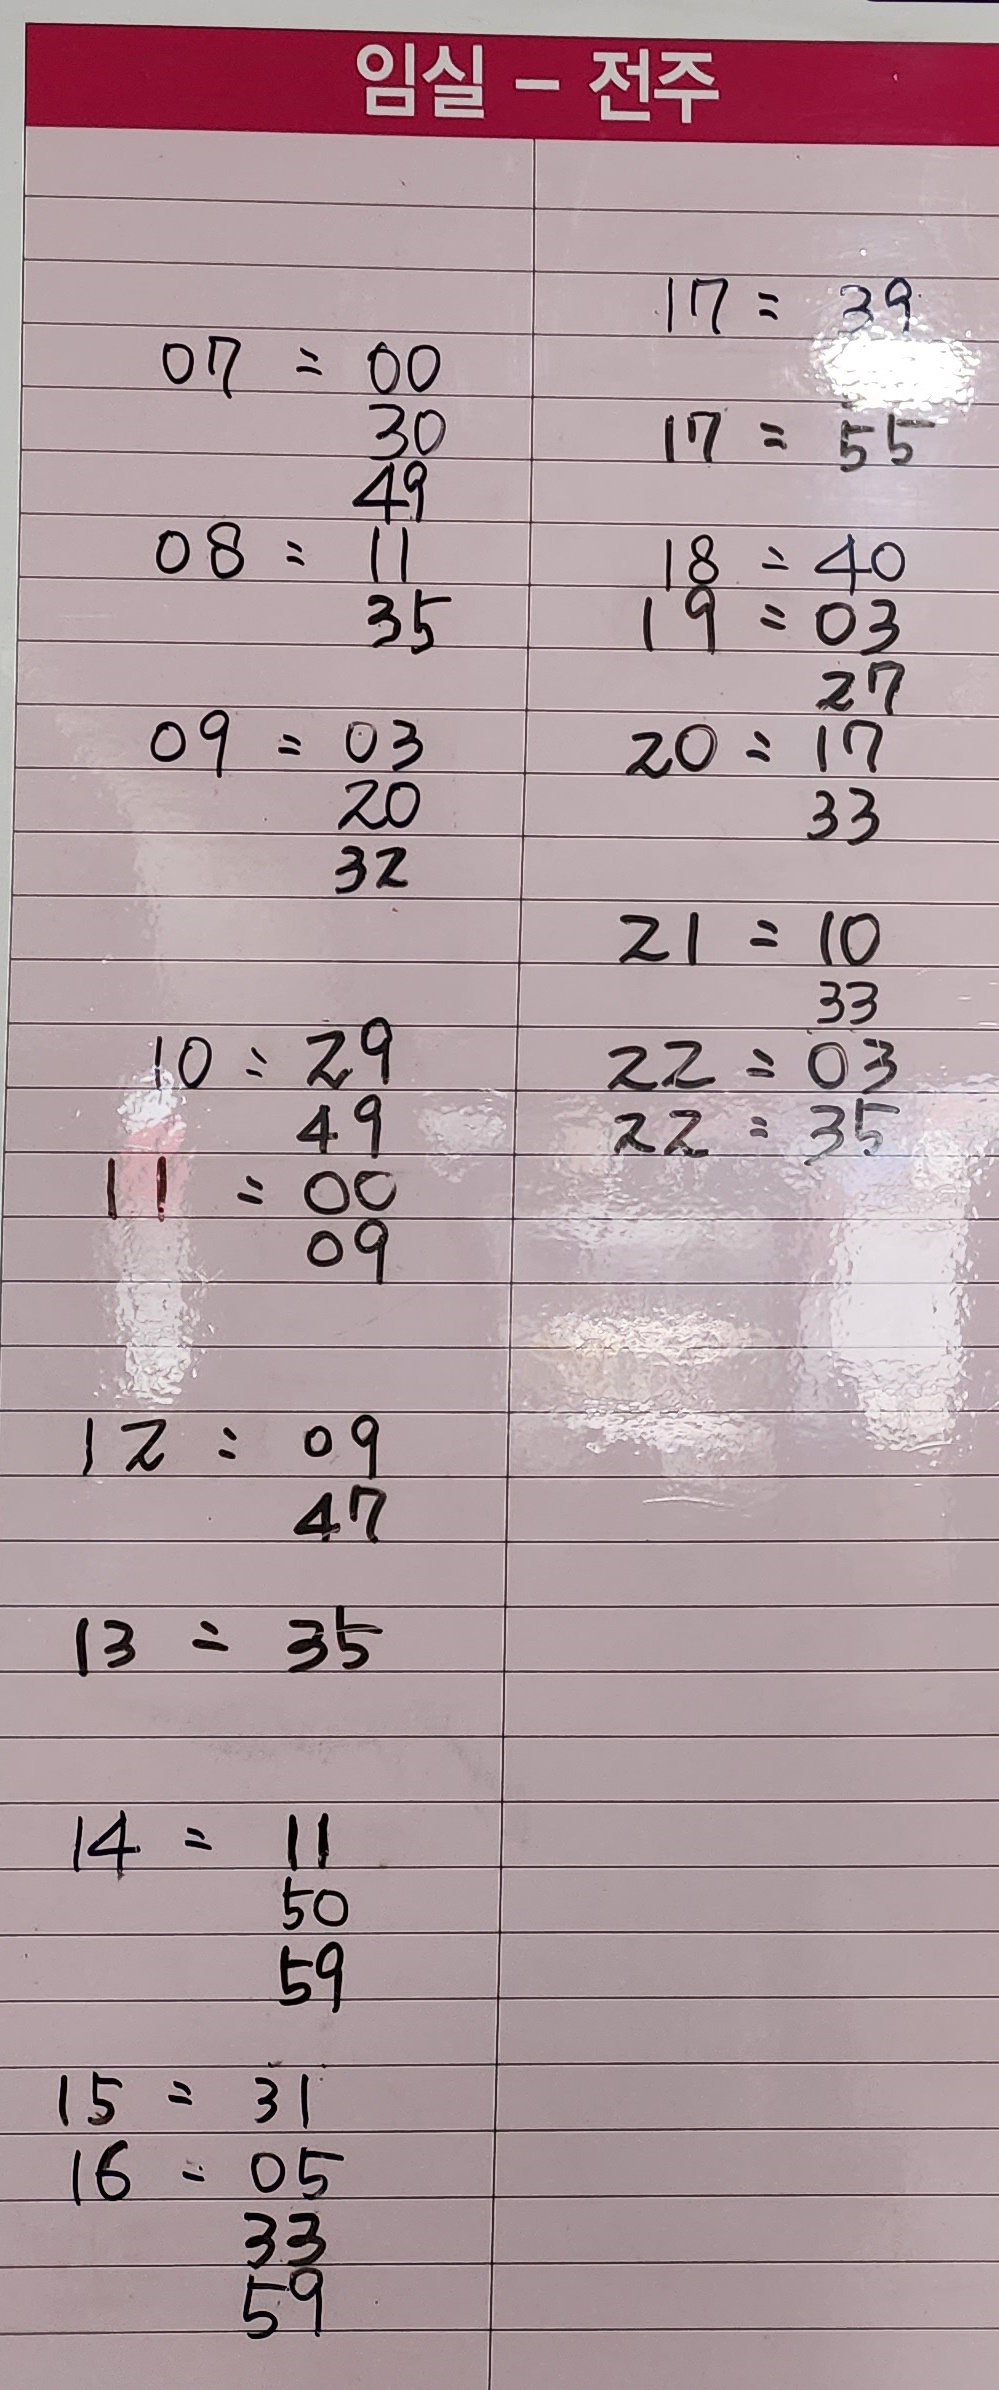 임실 - 전주
07 = 00
30
49
08 = 11
35
09 = 03
20
32
10 = 29
49
11 = 00
09
12 = 09
47
13 = 35
14 = 11
50
59
15 = 31
16 = 05
33
59
17 = 39
17 = 55
18 = 40
19 = 03
27
20 = 17
33
21 = 10
33
22 = 03
22 = 35